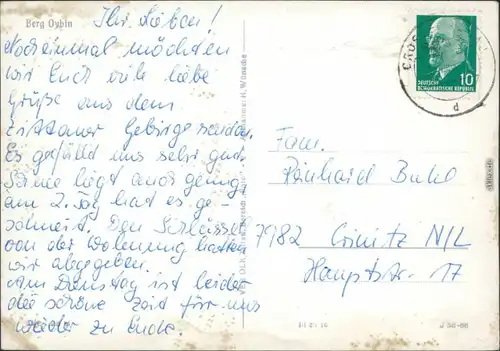 Berg Oybin
Ihr Lieben!
Noch einmal möchten
wir Euch viele liebe
Grüße aus dem
Zittauer Gebirge senden.
Es gefällt uns sehr gut.
Schnee liegt auch genug,
am 2. Tag hat es ge-
schneit. Den Schlüssel
von der Wohnung hatten
wir abgegeben.
Am Dienstag ist leider
die schöne Zeit für uns
wieder zu Ende.
DEUTSCHE
DEMOKRATISCHE REPUBLIK
10
d
Fam.
Reinhard
7982 Crinitz N/L
Hauptstr. 17